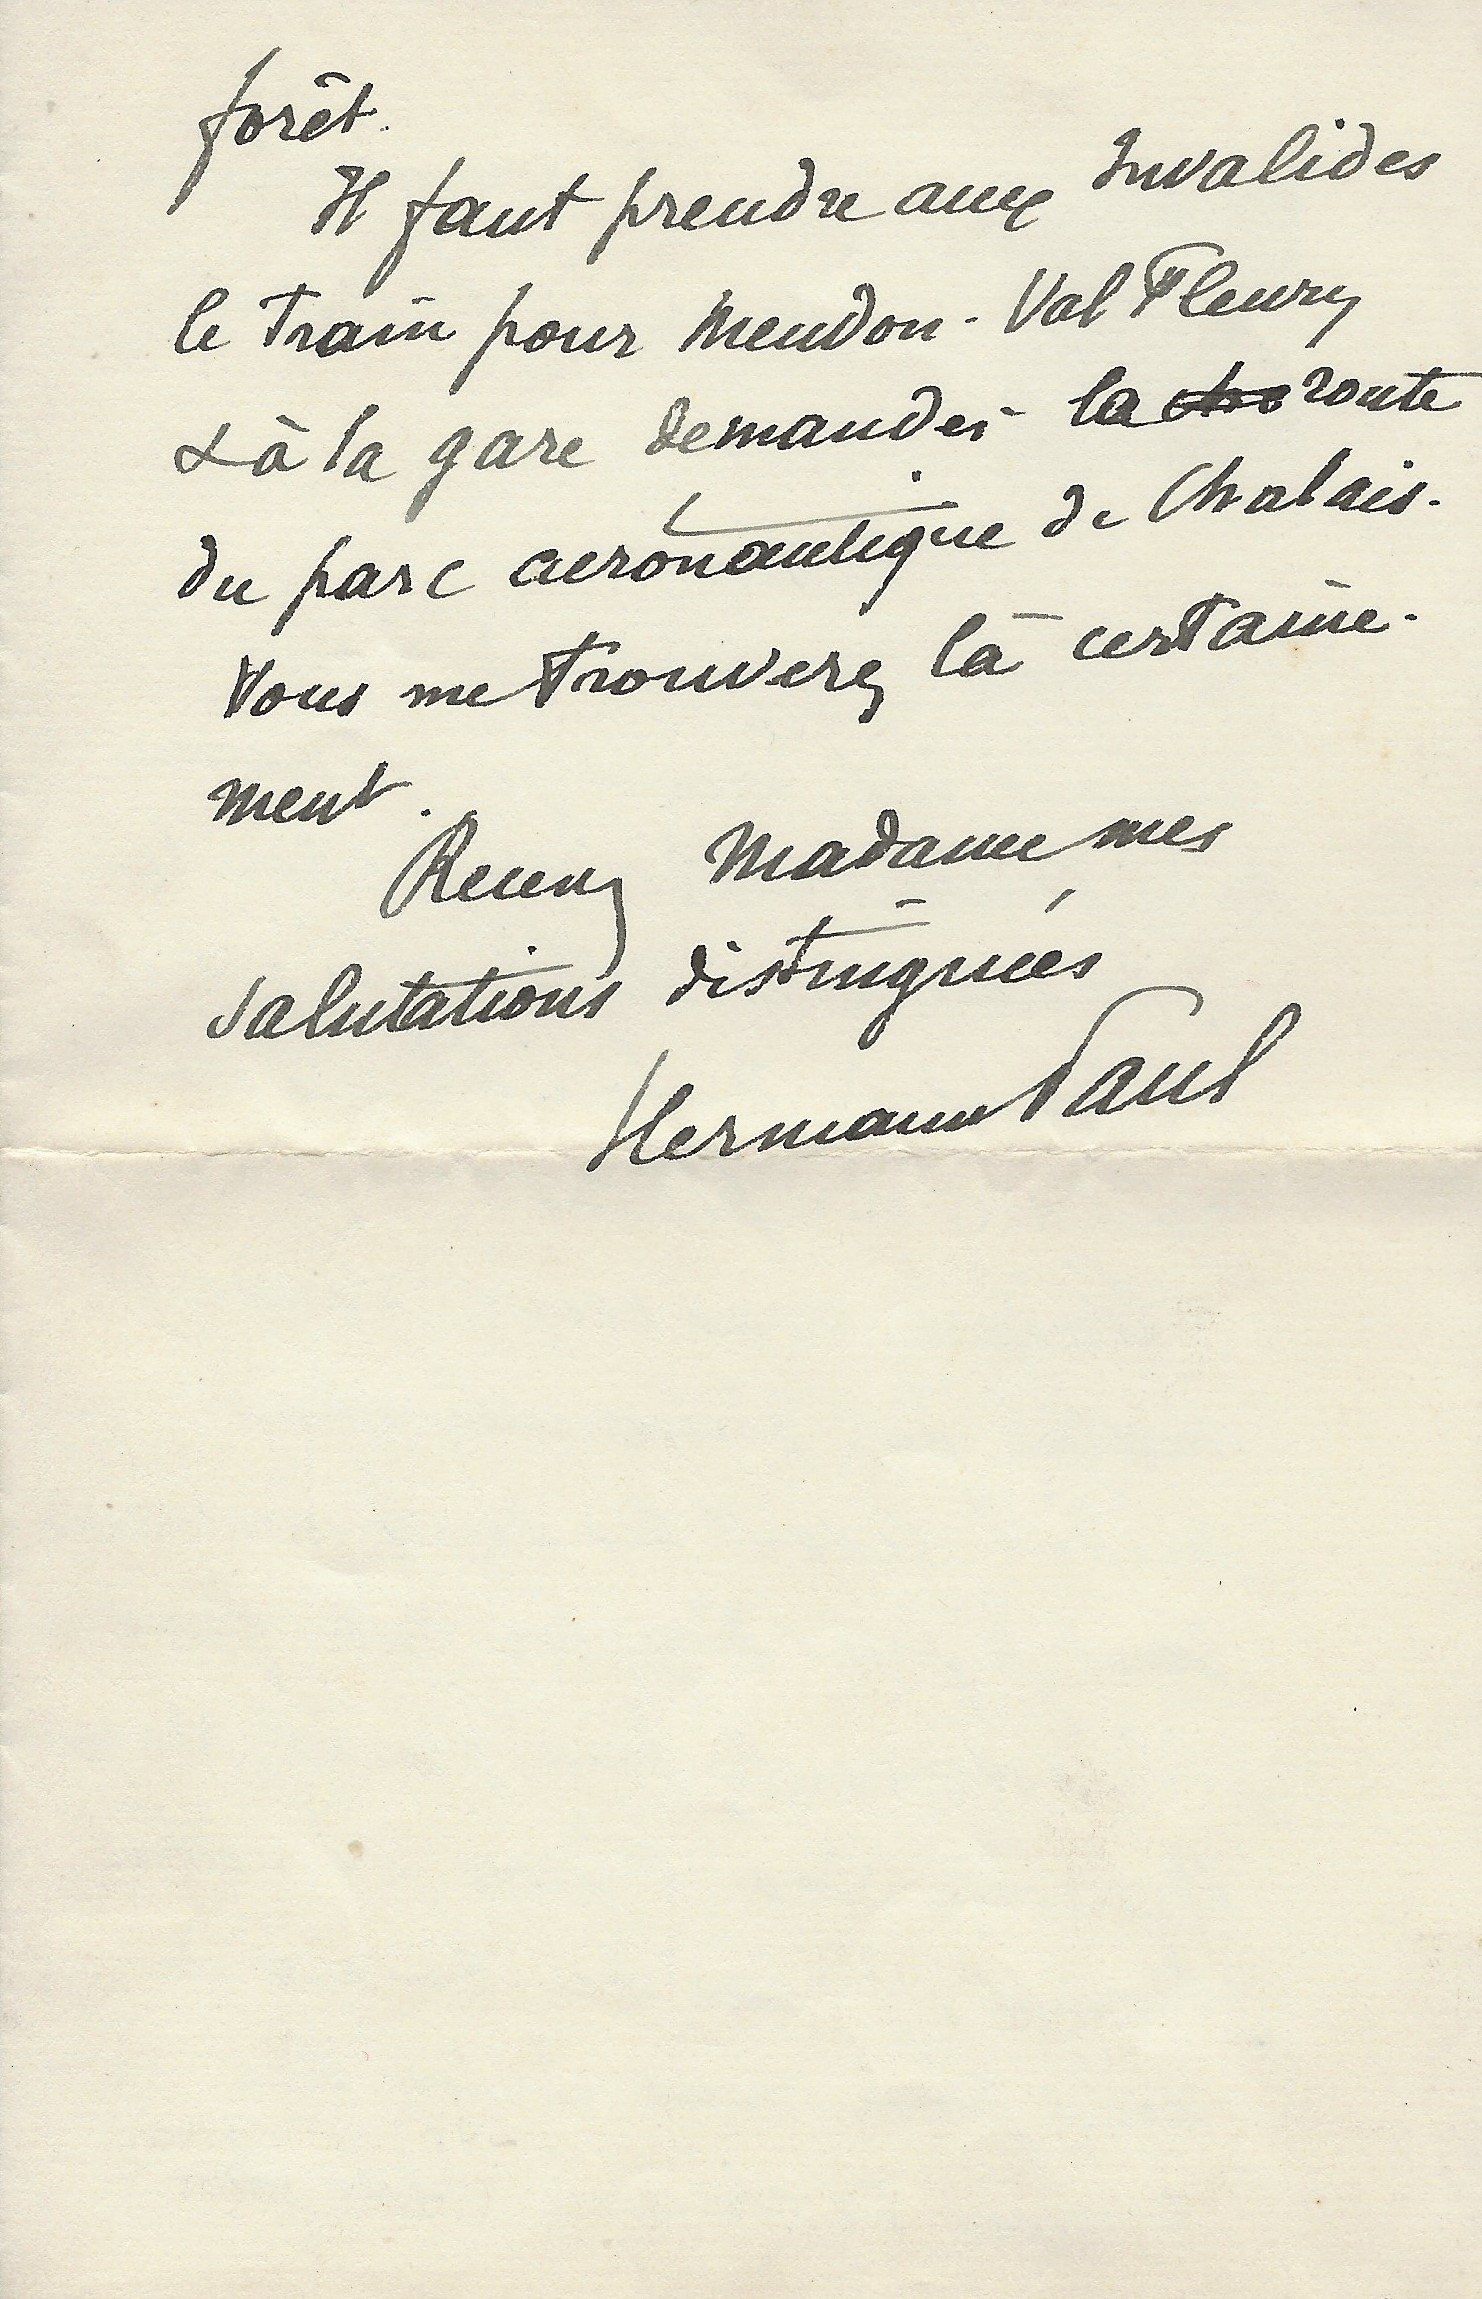 forêt.
Il faut prendre aux Invalides
le train pour Meudon-Val Fleury
& à la gare demander la route
du parc aeronautique de Chalais.
Vous me trouverez là certaine-
ment.
Recevez Madame mes
salutations distinguées
Hermann Paul